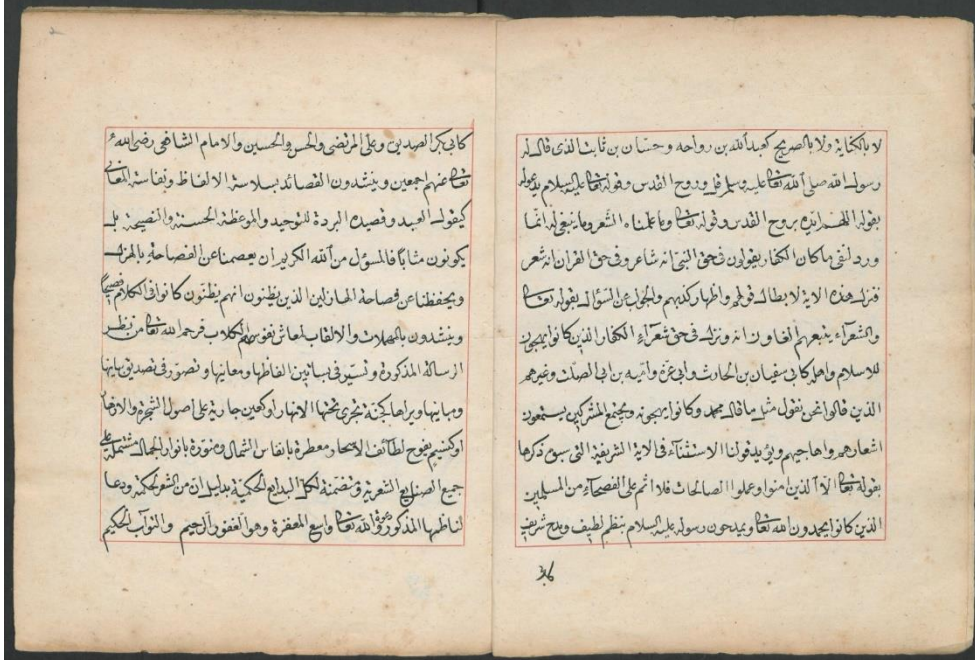 لا بالكناية ولا بالصريح كعبد الله بن رواحه وحسّان بن ثابت الذى قال له
رسول الله صلى الله تعالى عليه وسلم قل وروح القدس وقوله تعالى عليه السلام يدعو له
بقوله اللهم ايده بروح القدس وقوله تعالى وما علمناه الشعر وما ينبغى له انما
ورد لنفى ما كان الكفار يقولون فى حق النبى انه شاعر وفى حق القران انه شعر
فنزلت هذه الاية لابطال قولهم واظهار كذبهم والجواب عن السؤال بقوله تعالى
والشعراء يتبعهم الغاوون انه ونزل فى حق شعراء الكفار الذين كانوا يهجون
للاسلام واهله كابى سفيان بن الحارث وابى عزة واميه بن ابى الصلت وغيرهم
الذين قالوا نحن نقول مثل ما قال محمد وكانوا يهجونه ويجتمع المشركين يستمعون
اشعارهم واهاجيهم ويؤيد قولنا الاستثناء فى الاية الشريفة التى سبق ذكرها
بقوله تعالى الا الذين امنوا وعملوا الصالحات فلا اثم على الفصحاء من المسلمين
الذين كانوا يحمدون الله تعالى ويمدحون رسوله عليه السلام بنظم لطيف ومدح شريف
كابى
كابى بكر الصديق وعلى المرتضى والحسن والحسين والامام الشافعى رضى الله
تعالى عنهم اجمعين وينشدون القصائد بسلاسة الالفاظ ونفاسة المعانى
كيقول العبد وقصيده البردة للتوحيد والموعظة الحسنة والنصيحة بل
يكونون مثابا فالمسؤل من الله الكريم ان يعصمنا عن الفصاحة بالهزل
ويحفظنا عن فصاحة الهازلين الذين يظنون انهم يظنون كانوا فى الكلام فصيحا
وينشدون بالمهملات والالقاب لمعاش نفوسهم كالكلاب فرحم الله تعالى من نظر
الرسالة المذكورة وتستير فى بساتين الفاظها ومعانيها وتصور فى تصديق بيانها
ومبانيها ويراها كجنة تجرى تحتها الانهار او كعين جارية على اصول الشجرة والازهار
او كنسيم يفوح لطائف الاسحار معطرة بانفاس الشمال ومنورة بانوار الجمال مشتملة على
جميع الصنايع الشعرية ومتضمنة لكل البدايع الحكمية بدليل ان من الشعر لحكمة ودعا
لناظمها المذكور عزة والله تعالى واسع المغفرة وهو الغفور الرحيم والتواب الحكيم